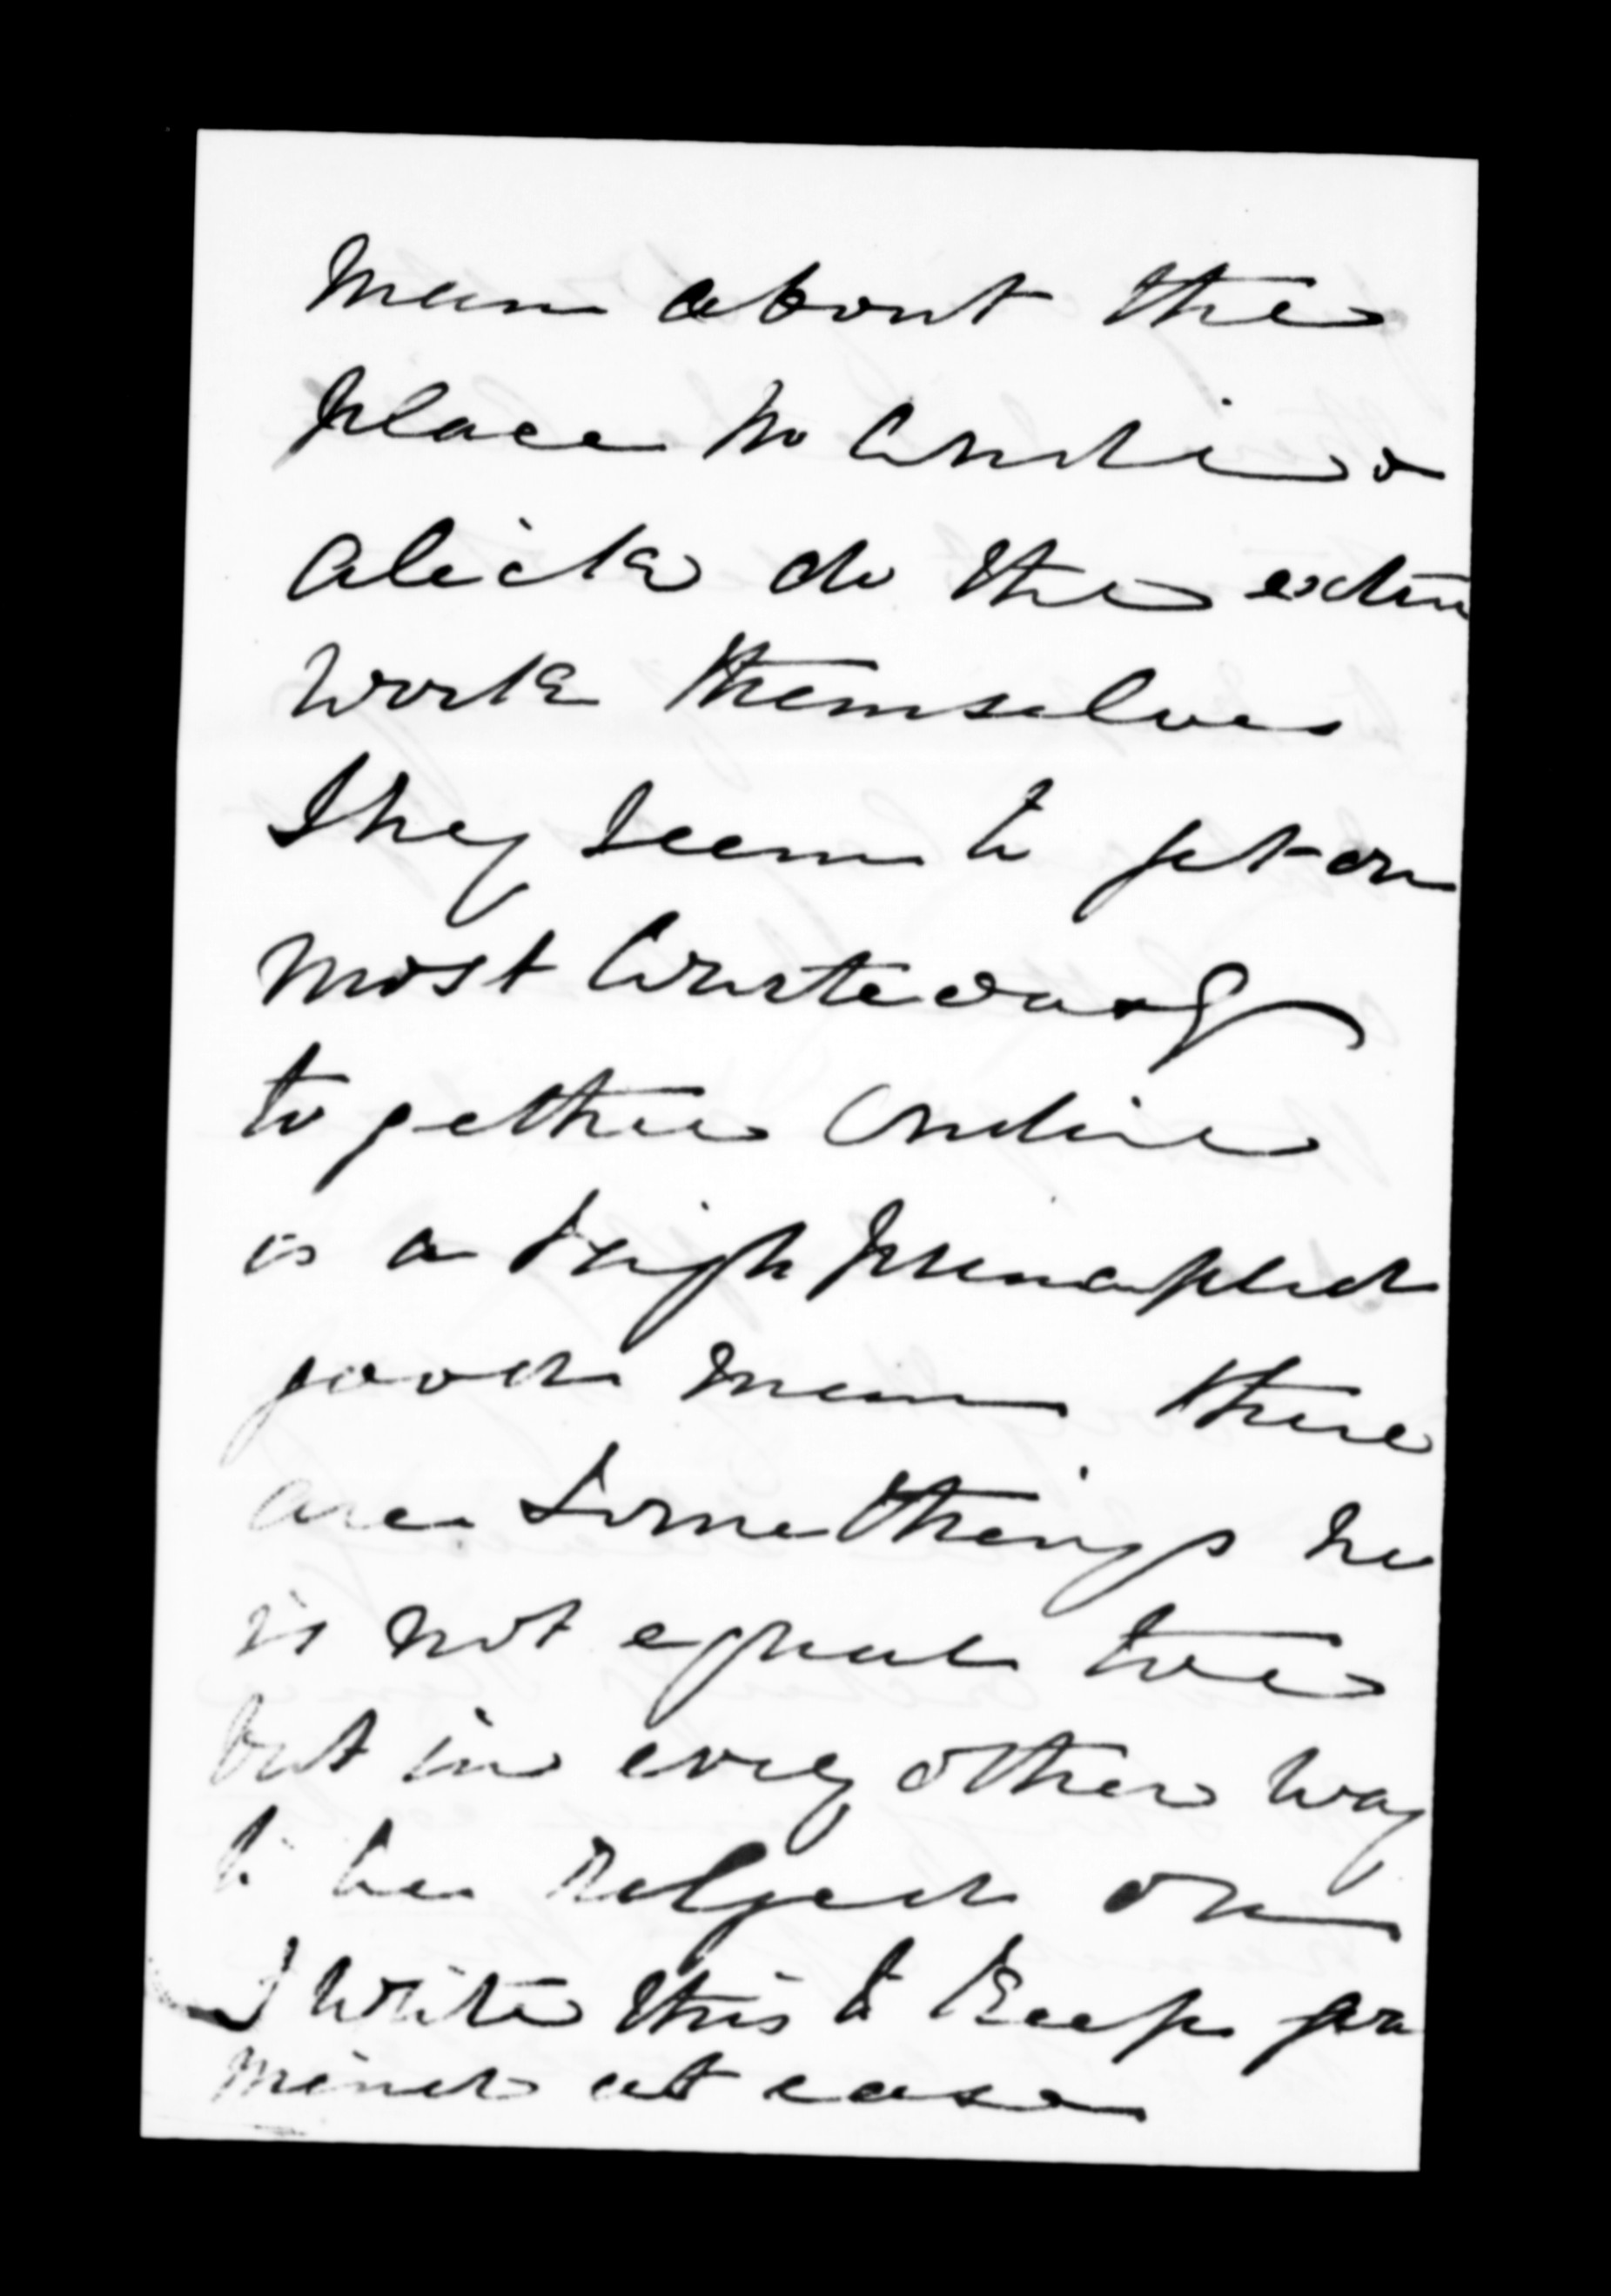 man about the
place Mr Condie &
Alick do the extra
work themselves
They seem to get on
most Courteously
together Condie
is a high principled
good man there
are some things he
is not equal too
but in every other way
to be relyed on
I write this to keep you
mind at ease